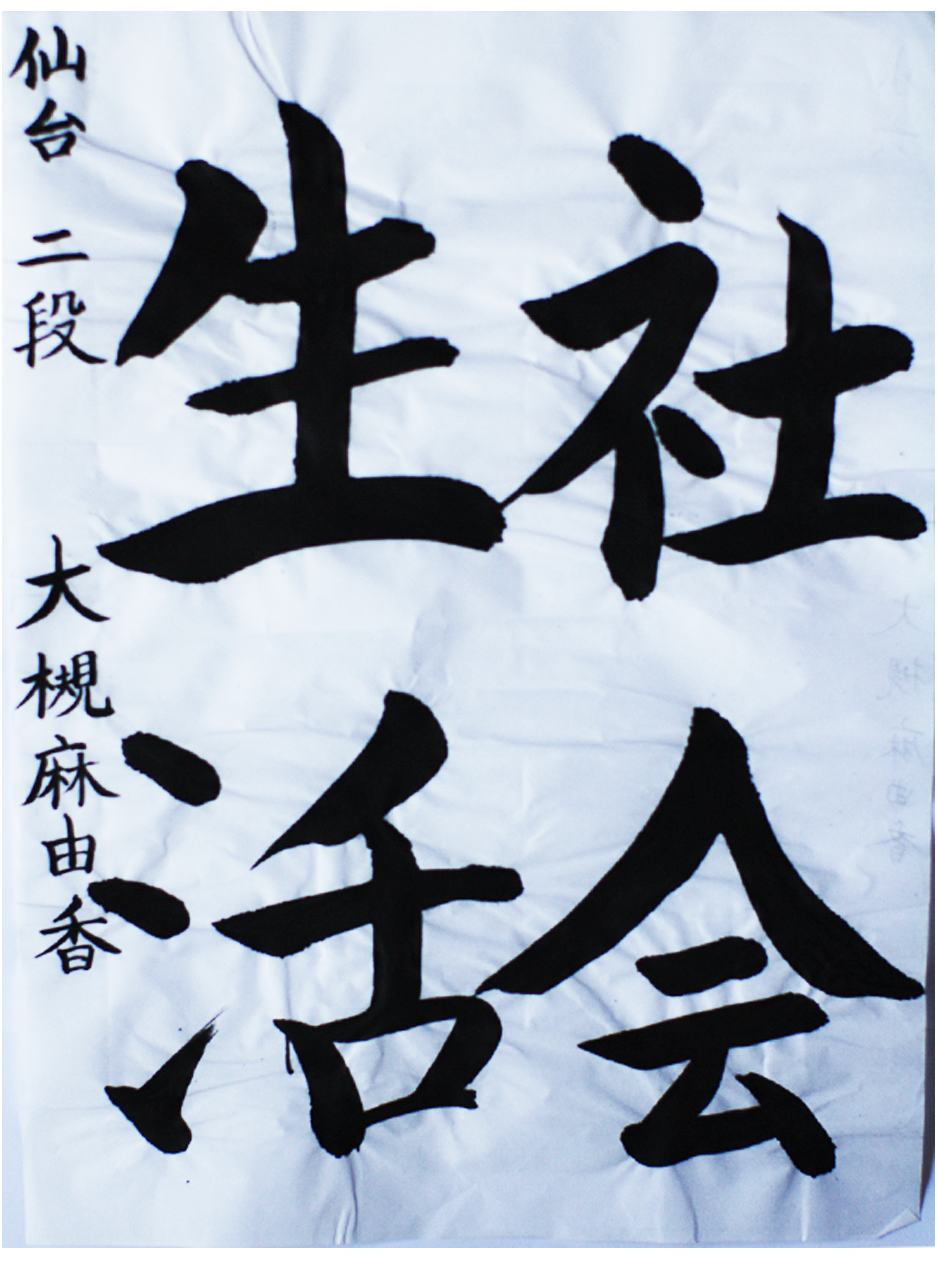 社会
生活
仙台 二段 大槻麻由香